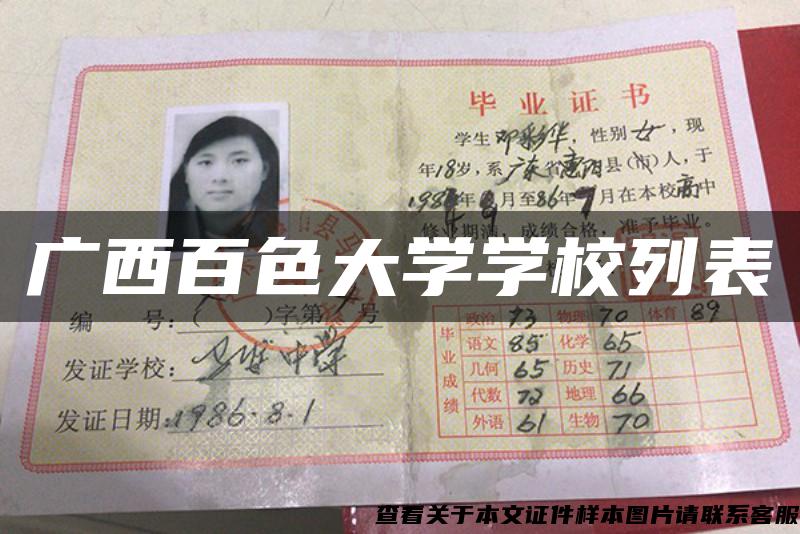 毕业证书
学生邓彩华,性别女,现
年18岁,系广东省惠阳县(市)人,于
月至86年7月在本校高中
修业期满,成绩合格,准予毕业。
广西百色大学学校列表
编 号:( )字第 号
发证学校:中学
发证日期:1986.8.1
毕业成绩
政治 73 物理 70 体育 89
语文 85 化学 65
几何 65 历史 71
代数 72 地理 66
外语 61 生物 70
查看关于本文证件样本图片请联系客服